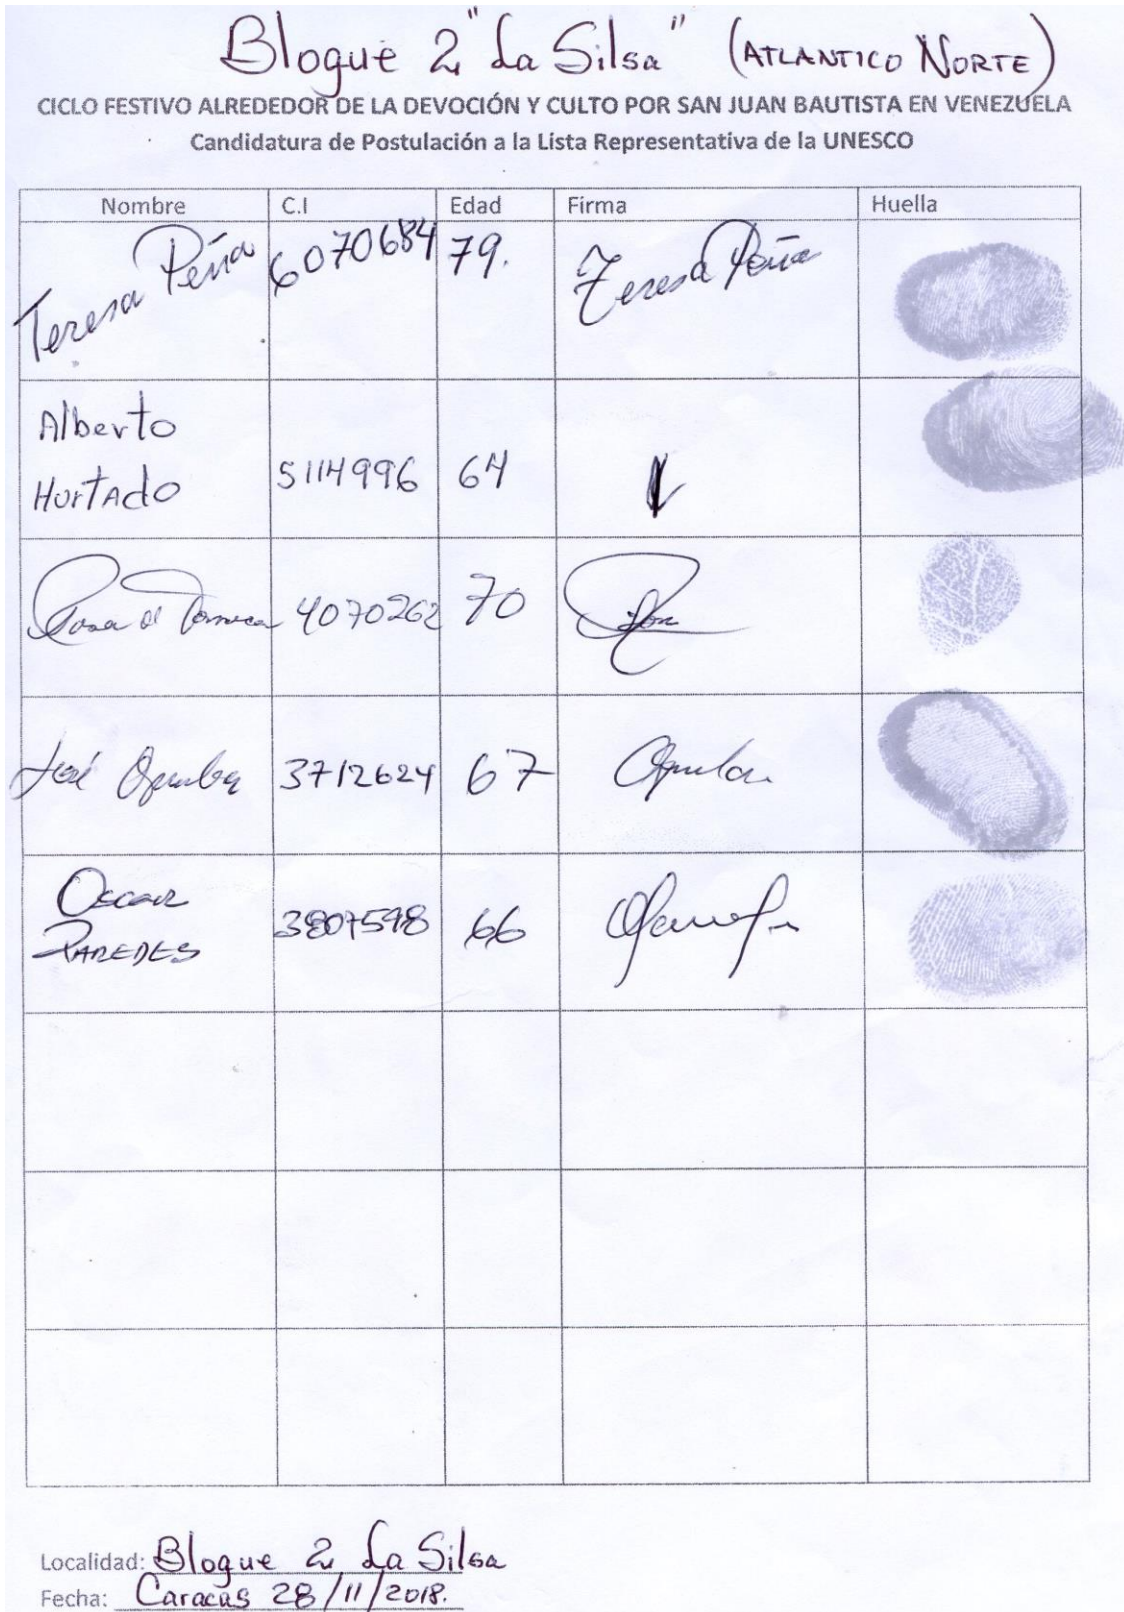 Bloque 2 "La Silsa" (ATLANTICO NORTE)
CICLO FESTIVO ALREDEDOR DE LA DEVOCIÓN Y CULTO POR SAN JUAN BAUTISTA EN VENEZUELA
Candidatura de Postulación a la Lista Representativa de la UNESCO
Nombre C.I Edad Firma Huella
Teresa Peña 6070684 79. Teresa Peña
Alberto
Hurtado 5114996 64
Rosa 4070262 70
José 3712624 67
Oscar
PAREDES 3807598 66
Localidad: Bloque 2 La Silsa
Fecha: Caracas 28/11/2018.